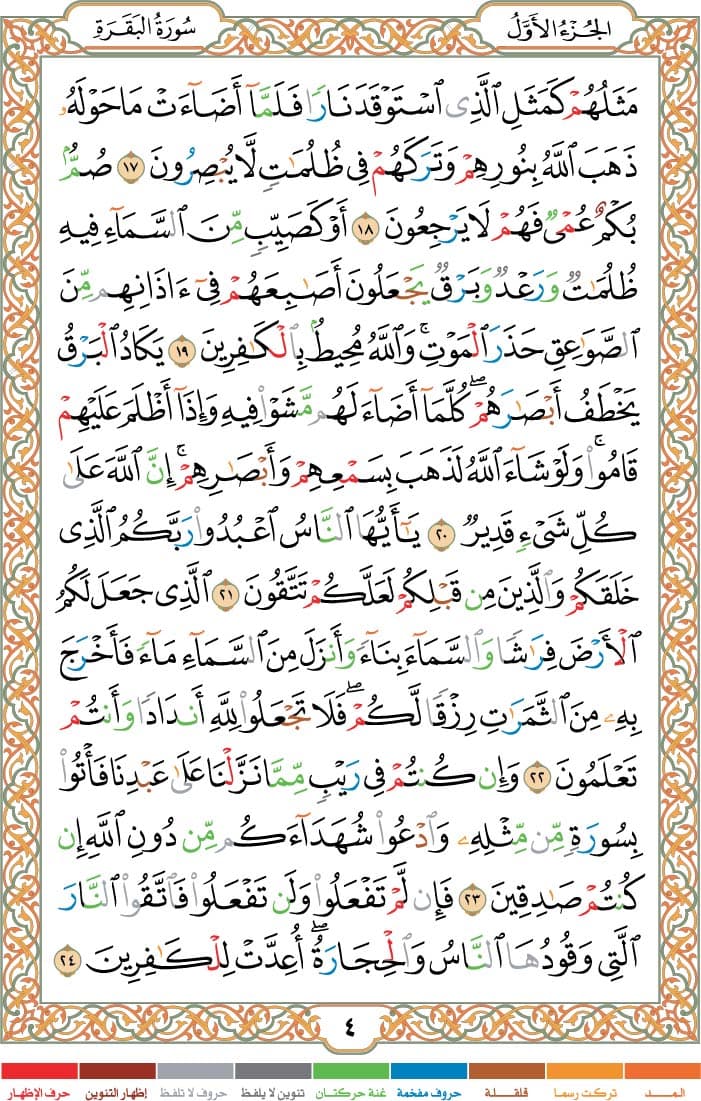 الجُزْءُ الأَوَّلُ
سُورَةُ البَقَرَةِ
مَثَلُهُمْ كَمَثَلِ ٱلَّذِى ٱسْتَوْقَدَ نَارًا فَلَمَّآ أَضَآءَتْ مَا حَوْلَهُۥ
ذَهَبَ ٱللَّهُ بِنُورِهِمْ وَتَرَكَهُمْ فِى ظُلُمَٰتٍ لَّا يُبْصِرُونَ ١٧ صُمٌّۢ
بُكْمٌ عُمْىٌ فَهُمْ لَا يَرْجِعُونَ ١٨ أَوْ كَصَيِّبٍ مِّنَ ٱلسَّمَآءِ فِيهِ
ظُلُمَٰتٌ وَرَعْدٌ وَبَرْقٌ يَجْعَلُونَ أَصَٰبِعَهُمْ فِىٓ ءَاذَانِهِم مِّنَ
ٱلصَّوَٰعِقِ حَذَرَ ٱلْمَوْتِ ۚ وَٱللَّهُ مُحِيطٌۢ بِٱلْكَٰفِرِينَ ١٩ يَكَادُ ٱلْبَرْقُ
يَخْطَفُ أَبْصَٰرَهُمْ ۖ كُلَّمَآ أَضَآءَ لَهُم مَّشَوْا۟ فِيهِ وَإِذَآ أَظْلَمَ عَلَيْهِمْ
قَامُوا۟ ۚ وَلَوْ شَآءَ ٱللَّهُ لَذَهَبَ بِسَمْعِهِمْ وَأَبْصَٰرِهِمْ ۚ إِنَّ ٱللَّهَ عَلَىٰ
كُلِّ شَىْءٍ قَدِيرٌ ٢٠ يَٰٓأَيُّهَا ٱلنَّاسُ ٱعْبُدُوا۟ رَبَّكُمُ ٱلَّذِى
خَلَقَكُمْ وَٱلَّذِينَ مِن قَبْلِكُمْ لَعَلَّكُمْ تَتَّقُونَ ٢١ ٱلَّذِى جَعَلَ لَكُمُ
ٱلْأَرْضَ فِرَٰشًا وَٱلسَّمَآءَ بِنَآءً وَأَنزَلَ مِنَ ٱلسَّمَآءِ مَآءً فَأَخْرَجَ
بِهِۦ مِنَ ٱلثَّمَرَٰتِ رِزْقًا لَّكُمْ ۖ فَلَا تَجْعَلُوا۟ لِلَّهِ أَندَادًا وَأَنتُمْ
تَعْلَمُونَ ٢٢ وَإِن كُنتُمْ فِى رَيْبٍ مِّمَّا نَزَّلْنَا عَلَىٰ عَبْدِنَا فَأْتُوا۟
بِسُورَةٍ مِّن مِّثْلِهِۦ وَٱدْعُوا۟ شُهَدَآءَكُم مِّن دُونِ ٱللَّهِ إِن
كُنتُمْ صَٰدِقِينَ ٢٣ فَإِن لَّمْ تَفْعَلُوا۟ وَلَن تَفْعَلُوا۟ فَٱتَّقُوا۟ ٱلنَّارَ
ٱلَّتِى وَقُودُهَا ٱلنَّاسُ وَٱلْحِجَارَةُ ۖ أُعِدَّتْ لِلْكَٰفِرِينَ ٢٤
٤
المـــد تركت رسما قلقـلة حروف مفخمة غنة حركتان تنوين لا يلفظ حروف لا تلفظ إظهار التنوين حرف الإظهار